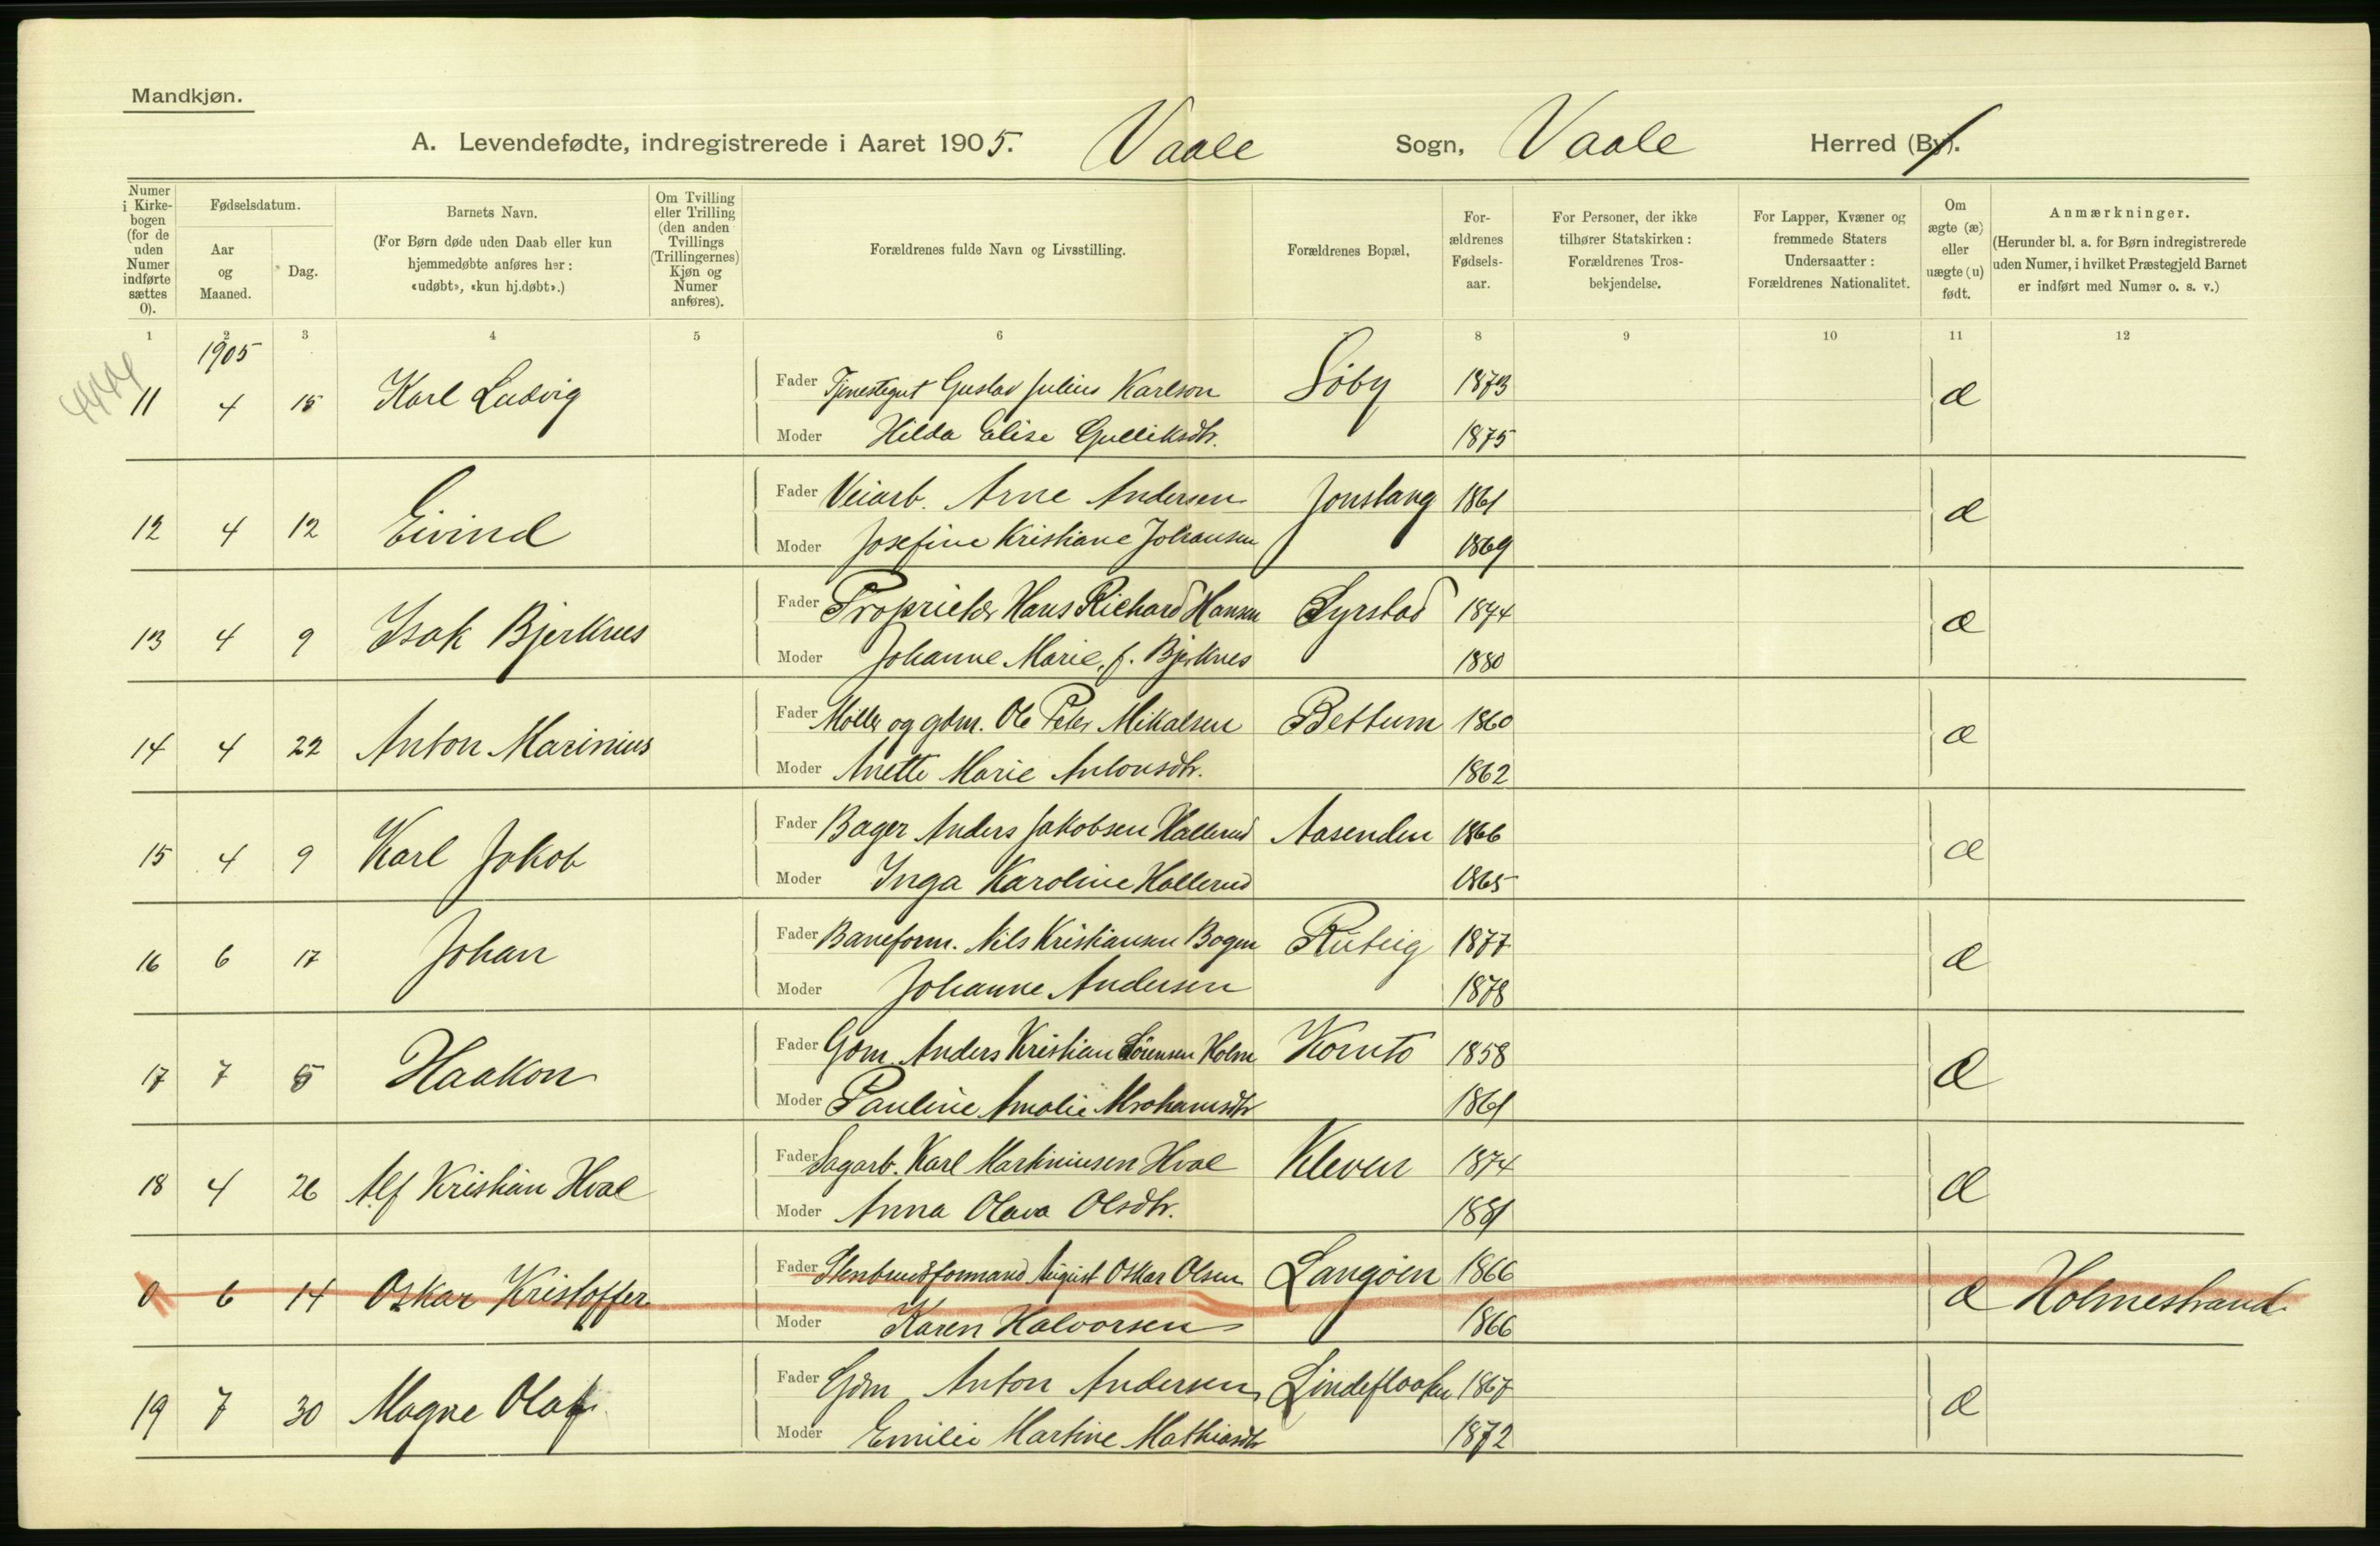 Mandkjøn.
A. Levendefødte, indregistrerede i Aaret 1905. Vaale Sogn, Vaale Herred (By).
Numer i Kirkebogen (for de uden Numer indførte sættes 0).
Fødselsdatum.
Aar og Maaned.
Dag.
Barnets Navn.
(For Børn døde uden Daab eller kun hjemmedøbte anføres her: «udøbt», «kun hj.døbt».)
Om Tvilling eller Trilling (den anden Tvillings (Trillingernes) Kjøn og Numer anføres).
Forældrenes fulde Navn og Livsstilling.
Forældrenes Bopæl.
Forældrenes Fødselsaar.
For Personer, der ikke tilhører Statskirken: Forældrenes Trosbekjendelse.
For Lapper, Kvæner og fremmede Staters Undersaatter: Forældrenes Nationalitet.
Om ægte (æ) eller uægte (u) født.
Anmærkninger.
(Herunder bl. a. for Børn indregistrerede uden Numer, i hvilket Præstegjeld Barnet er indført med Numer o. s. v.)
1 2 3 4 5 6 7 8 9 10 11 12
1905
11 4 15 Karl Ludvig Fader Tjenestegut Gustav Julius Karlson Söby 1873 æ
Moder Hilda Elise Gulliksdtr. 1875
12 4 12 Eivind Fader Veiarb. Arne Andersen Jonslang 1861 æ
Moder Josefine Kristiane Johansen 1869
13 4 9 Isak Bjerknes Fader Proprietær Hans Richard Hansen Syrstad 1874 æ
Moder Johanne Marie, f. Bjerknes 1880
14 4 22 Anton Marinius Fader Møller og gdm. Ole Peter Mikalsen Bettum 1860 æ
Moder Anette Marie Antonsdtr. 1862
15 4 9 Karl Jakob Fader Bager Anders Jakobsen Hallerud Aasenden 1866 æ
Moder Inga Karoline Hallerud 1865
16 6 17 Johan Fader Baneform. Nils Kristiansen Bogen 1877 æ
Moder Johanne Andersen 1878
17 7 5 Haakon Fader Gdm. Anders Kristian Sörensen Holm 1858 æ
Moder Pauline Amalie Abrahamsdtr 1861
18 4 26 Alf Kristian Hval Fader Sagarb. Karl Martiniusen Hval Kleven 1874 æ
Moder Anna Olava Olsdtr. 1881
0 6 14 Oskar Kristoffer Fader Stenbrudsformand August Oskar Olsen Langöen 1866 æ Holmestrand
Moder Karen Halvorsen 1866
19 7 30 Magne Olaf Fader Gdm Anton Andersen 1867 æ
Moder Emilie Martine Mathiasdtr 1872